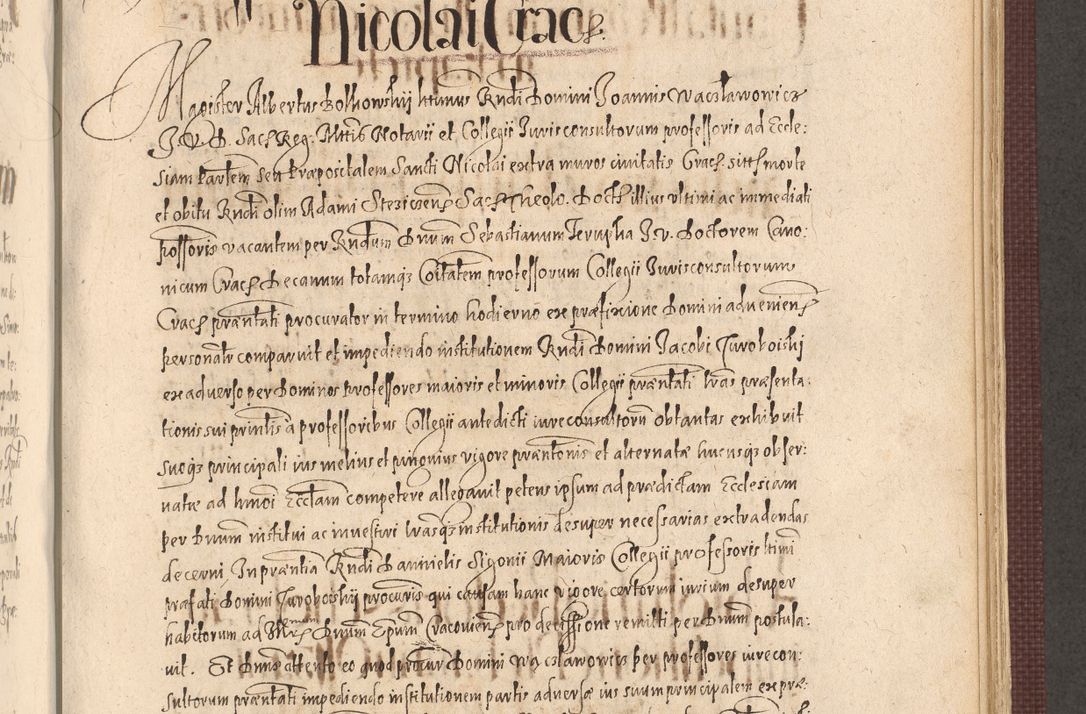 Nicolai Crac.
Magister Albertus Bolhowskij lttimus Rndi Domini Joannis Waczlawowicz
J. V. D. Sac. Reg. Mttis Notarii et Collegii Jurisconsultorum professoris ad Eccle:
siam seu Præpositalem Sancti Nicolai extra muros civitatis Crac. morte
et obitu Rndi olim Adami Sac. Theolo. Doct. illius ultimi ac immediati
possoris vacantem per Rndum Dnum Sebastianum J. V. Doctorem Cano:
nicum Crac. Decanum totamqz Coitatem professorum Collegii Jurisconsultorum
Crac. præntati procurator in termino hodierno ex præfixione Domini advenien
personatr comparuit et impediendo institutionem Rndi Domini Jacobi Turoboiski
ex adverso per Dominos Professores maioris et minoris Collegii præntati lras præsenta:
tionis sui prinlis a professoribus Collegii antedicti iureconsultorum obtantas exhibuit
suoqz principali ius melius et vigore præntonis et alternatæ hucusqz obser:
vatæ ad hmoi Eccłam competere allegavit petens ipsum ad prædictam Ecclesiam
per Dnum institui ac investiri lrasqz institutionis desuper necessarias extradendas
decerni. In præntia Rndi Dannielis Sigonii Maioris Collegii professoris ltimi
præfati Domini Turoboiskij procuris qui causam hanc vigore certorum iurium desuper
habitorum ad Dnum Epum Cracovien pro decissione remitti per Dnum postula:
vit. Et Dnus attento eo quod procur Domini Waczlawowicz per professores iurecon:
sultorum præntati impediendo institutionem partis adversæ ius suum principalem ex præ: